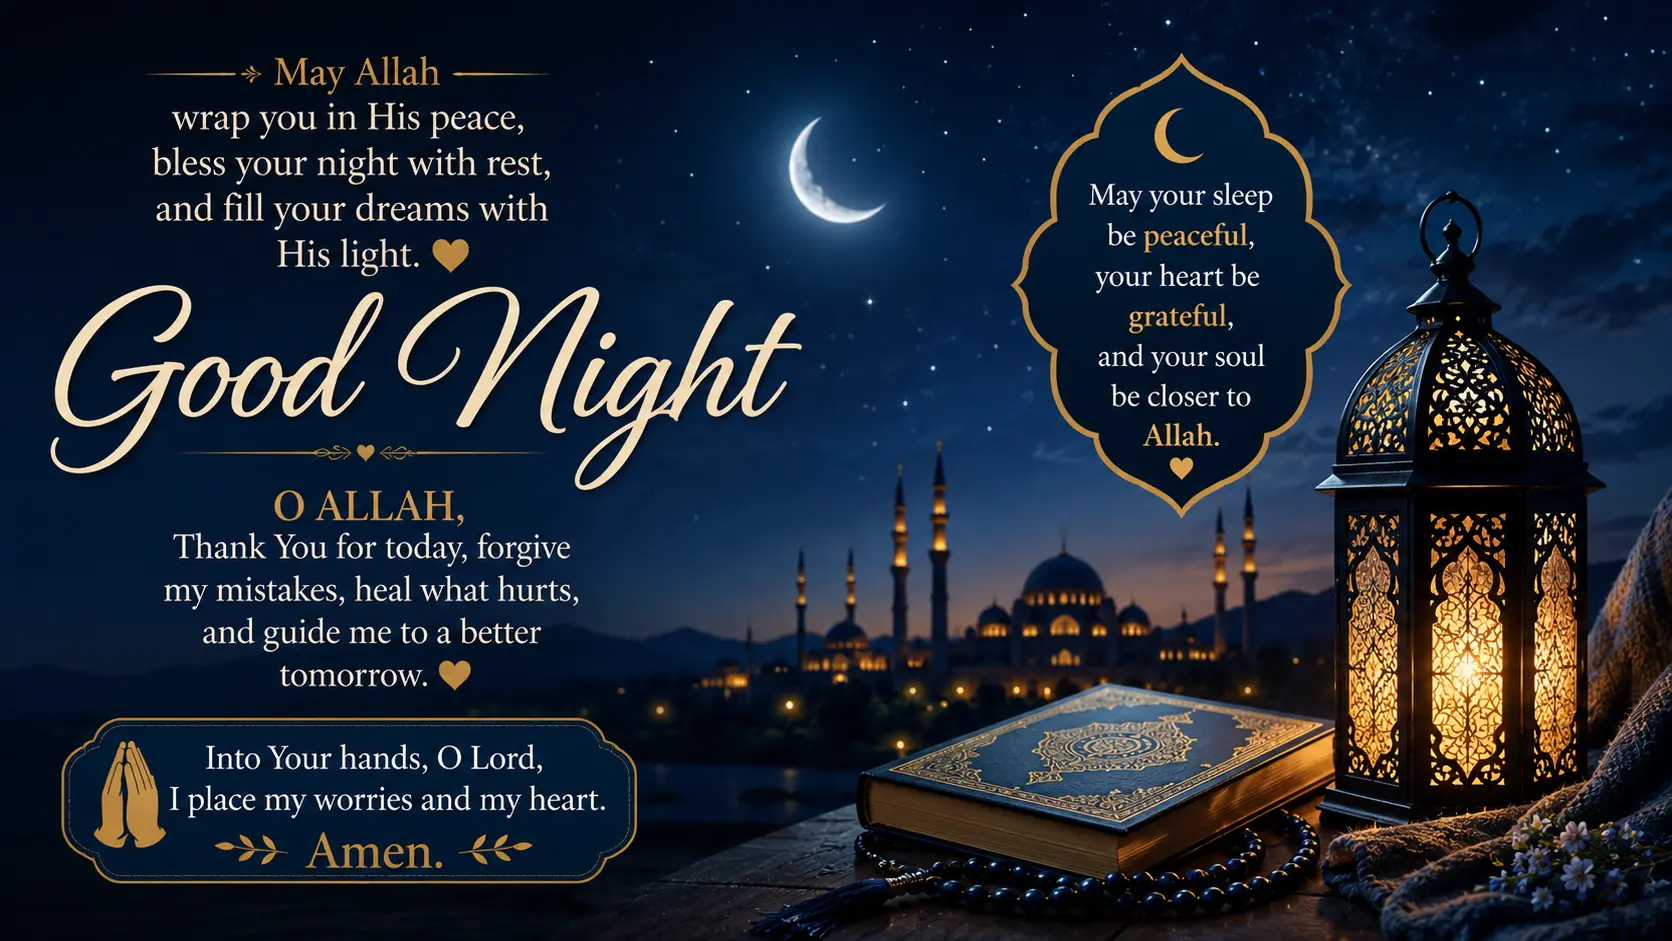 May Allah
wrap you in His peace,
bless your night with rest,
and fill your dreams with
His light.
Good Night
O ALLAH,
Thank You for today, forgive
my mistakes, heal what hurts,
and guide me to a better
tomorrow.
Into Your hands, O Lord,
I place my worries and my heart.
Amen.
May your sleep
be peaceful,
your heart be
grateful,
and your soul
be closer to
Allah.